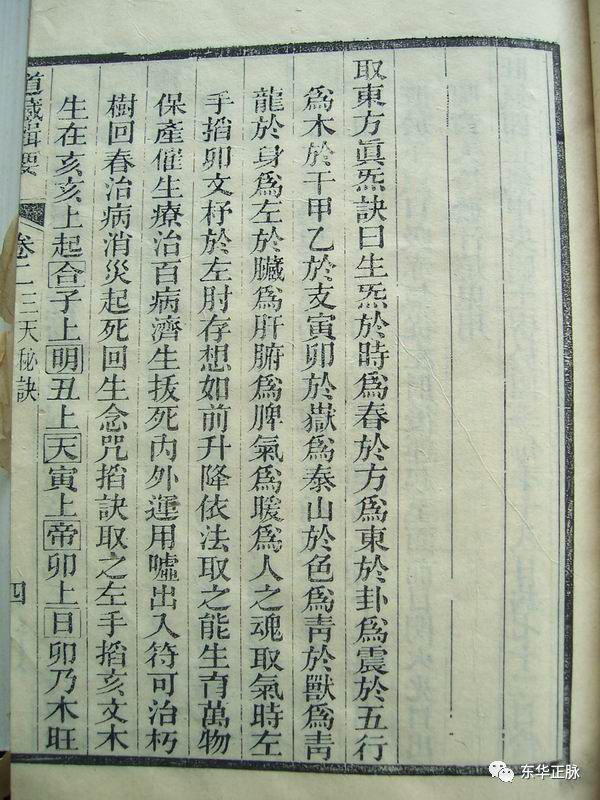 取東方眞炁訣曰生炁於時爲春於方爲東於卦爲震於五行
爲木於干甲乙於支寅卯於嶽爲泰山於色爲靑於獸爲靑
龍於身爲左於臟爲肝腑爲脾氣爲暖爲人之魂取氣時左
手掐卯文杼於左肘存想如前升降依法取之能生育萬物
保產催生療治百病濟生拔死內外運用噓出入符可治朽
樹回春治病消災起死回生念咒掐訣取之左手掐亥文木
生在亥亥上起合子上明丑上天寅上帝卯上日卯乃木旺
道藏輯要 卷二三天秘訣 四
东华正脉